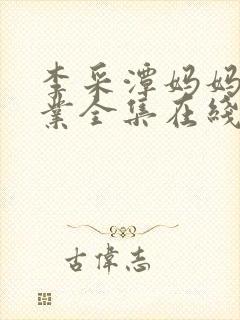 李采潭妈妈
業全集在綫
古偉志